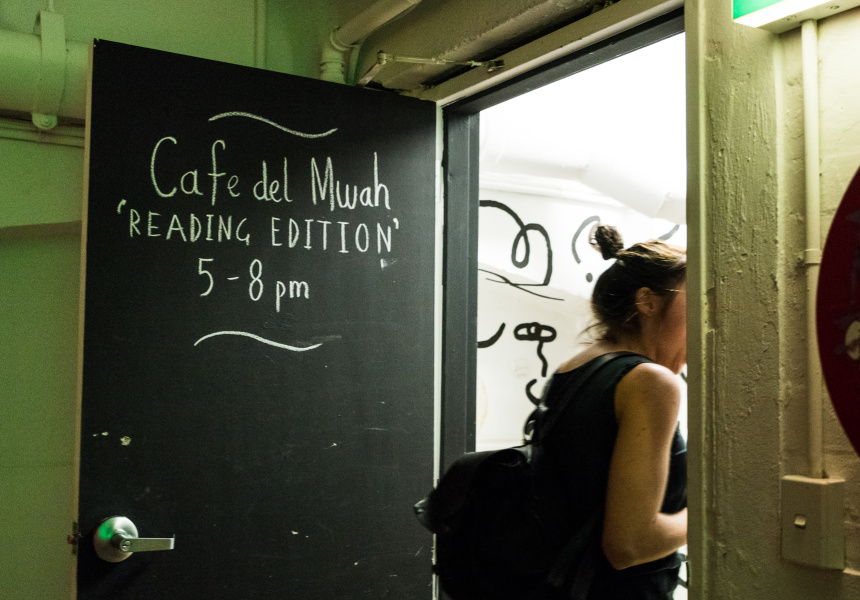 Cafe del Mwah
'READING EDITION'
5-8 pm